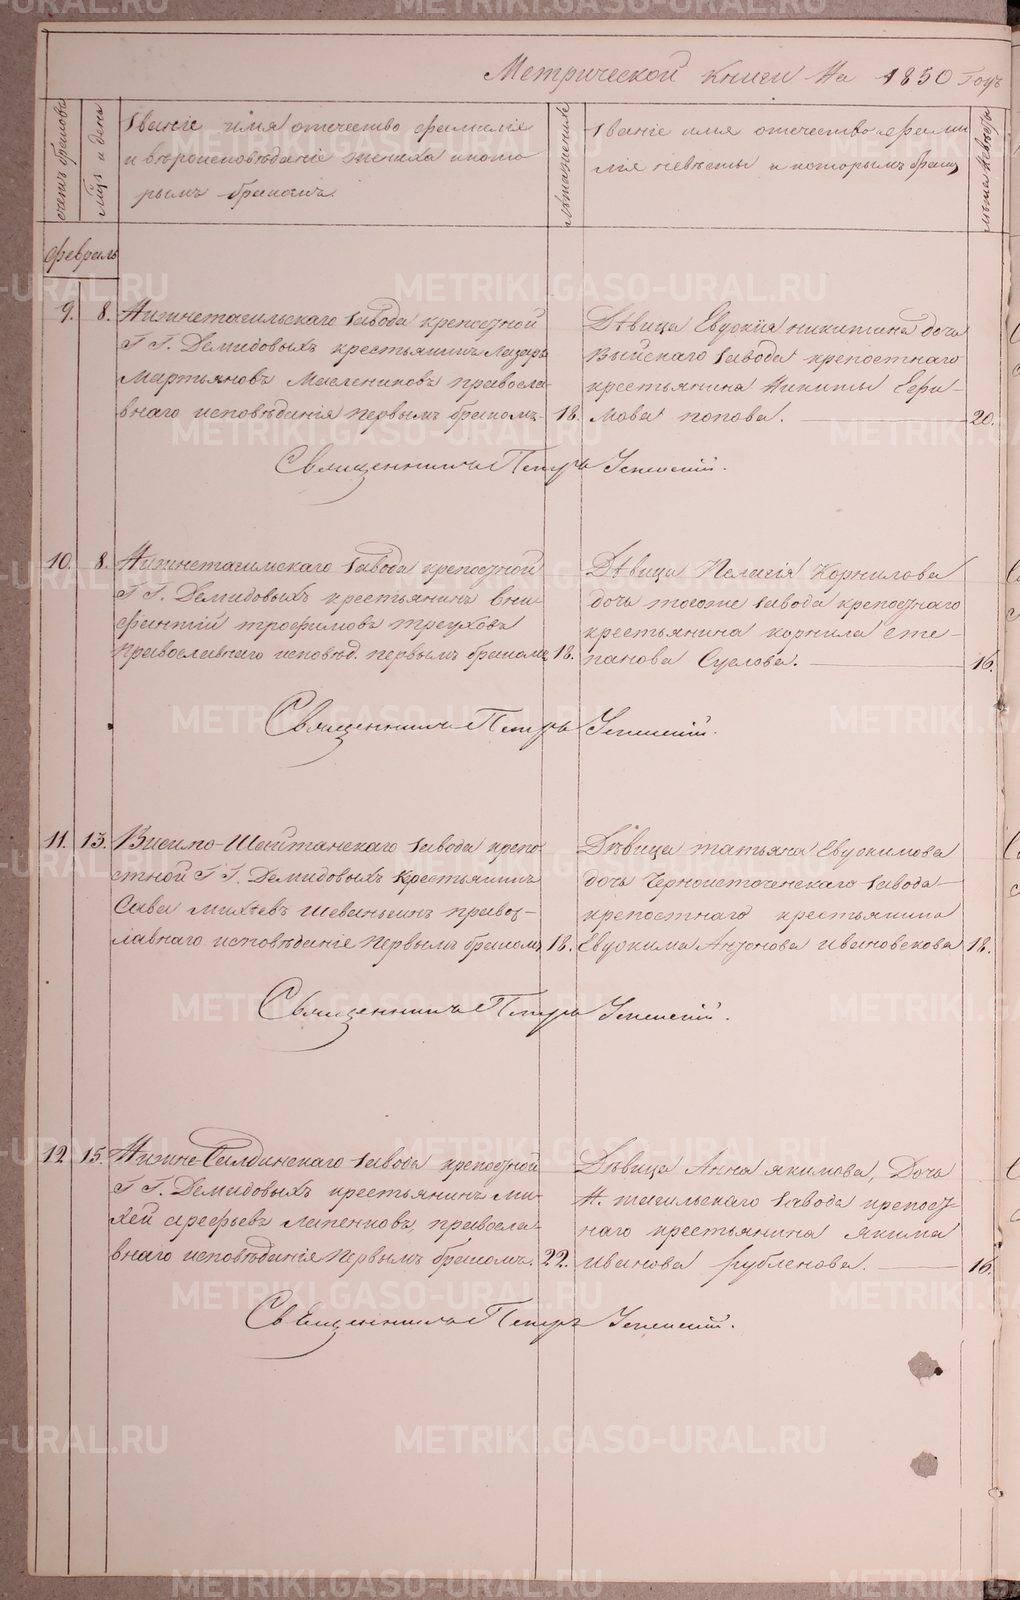 Метрической книги На 1850 Годъ
счетъ браковъ
Мцъ и день
Званіе имя отечество фамилія
и вѣроисповѣданіе жениха и кото
рымъ бракомъ
Лѣта жениха
Званіе имя отечество фами
лія невѣсты и которымъ брак
лѣта невѣсты
февраль
9. 8. Нижнетагильскаго завода крепостной
Г Г. Демидовыхъ крестьянинъ Лазарь
Мартьяновъ Маслениковъ православ
внаго исповѣданія первымъ бракомъ 18.
Дѣвица Евдокія никитина дочь
Выйскаго завода крепостнаго
крестьянина Никиты Ефи-
мова попова. 20.
Священникъ Петръ Успенскій.
10. 8. Нижнетагильскаго завода крепостной
Г Г. Демидовыхъ крестьянинъ Вни
фантій трофимовъ треуховъ
Православнаго исповѣд. первымъ бракомъ 18.
Дѣвица Пелагія Корнилова
дочь тогоже завода крепостнаго
крестьянина корнила сте-
панова Суслова. 16.
Священникъ Петръ Успенскій.
11. 13. Висимо-Шайтанскаго завода крепо
стной Г Г. Демидовыхъ Крестьянинъ
Сава михѣевъ шеванькинъ правос-
лавнаго исповѣданіе первымъ бракомъ 18.
Дѣвица татьяна Евдокимова
дочь Черноисточенскаго завода
крепостнаго крестьянина
Евдокима Антонова Ивановскова 18.
Священникъ Петръ Успенскій.
12 15. Нижне-Салдинскаго завода крепостной
Г Г. Демидовыхъ крестьянинъ ми-
хей арефьевъ лапенковъ, правосла-
внаго исповѣданія первымъ бракомъ. 22.
Дѣвица Анна якимова, Дочь
Н. тагильскаго завода крепост-
наго крестьянина Якима
иванова рубленова. 16.
Священникъ Петръ Успенскій.
METRIKI.GASO-URAL.RU